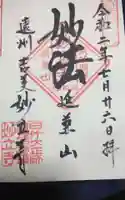 令和二年七月廿六日拝
妙法
延兼山
遠州 吉美 妙立寺